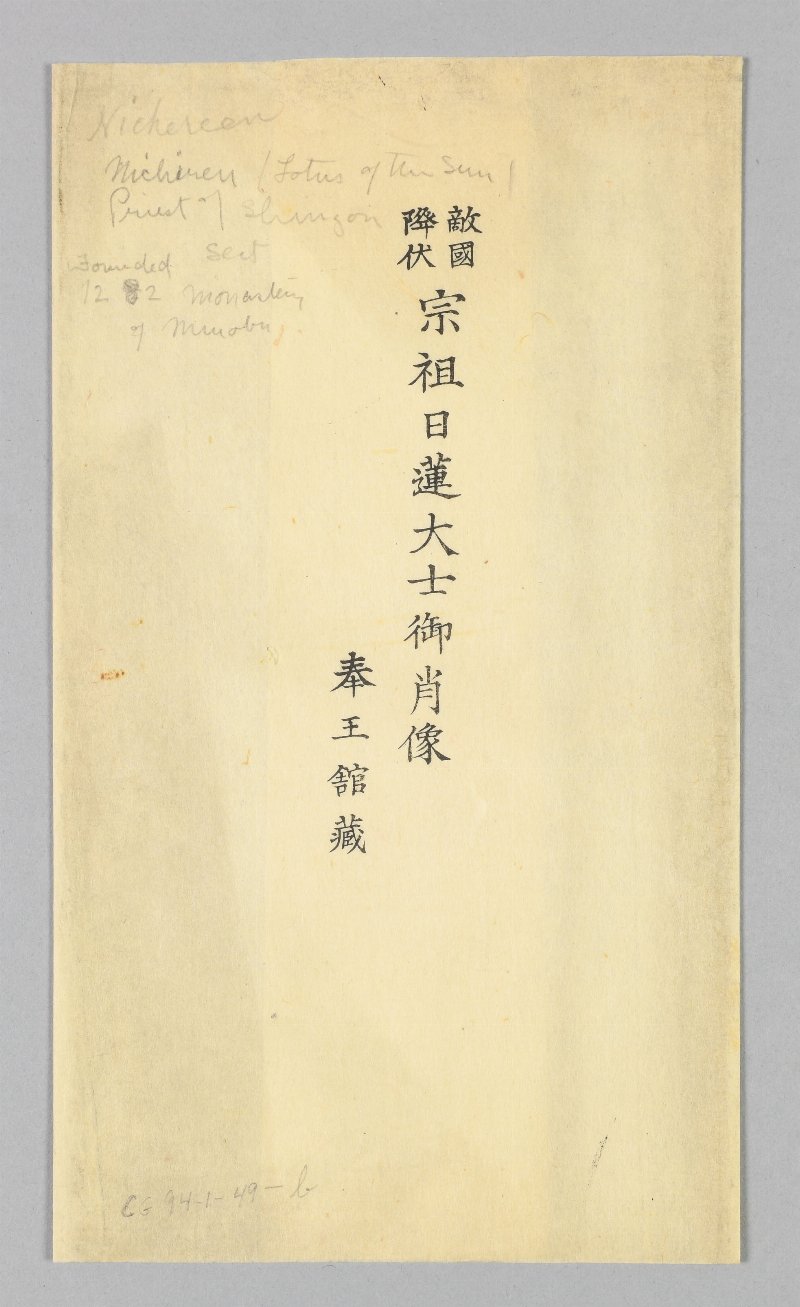 Nichereen
Nichiren (Lotus of the Sun)
Priest of Shingon
Sect
Founded
12 82 Monastery
of Minobu
敵國
降伏
宗祖日蓮大士御肖像
奉王舘藏
CG 94-1-49-b